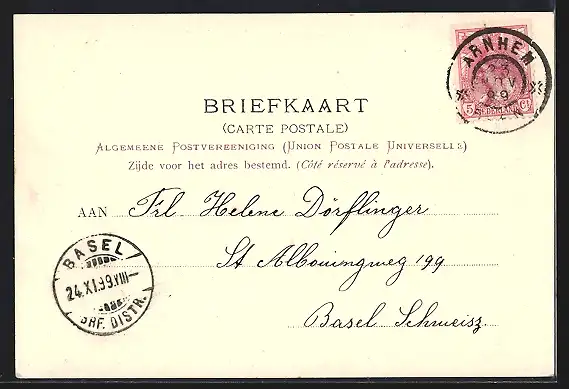 ARNHEM
23
NOV
99
5 NEDERLAND Ct
BRIEFKAART
(CARTE POSTALE)
ALGEMEENE POSTVEREENIGING (UNION POSTALE UNIVERSELLE)
Zijde voor het adres bestemd. (Côté réservé à l'adresse).
AAN Frl. Helene Dörflinger
St Albouingweg 199
Basel Schweisz.
BASEL
24.XI.99.VIII—
BRF. DISTR.